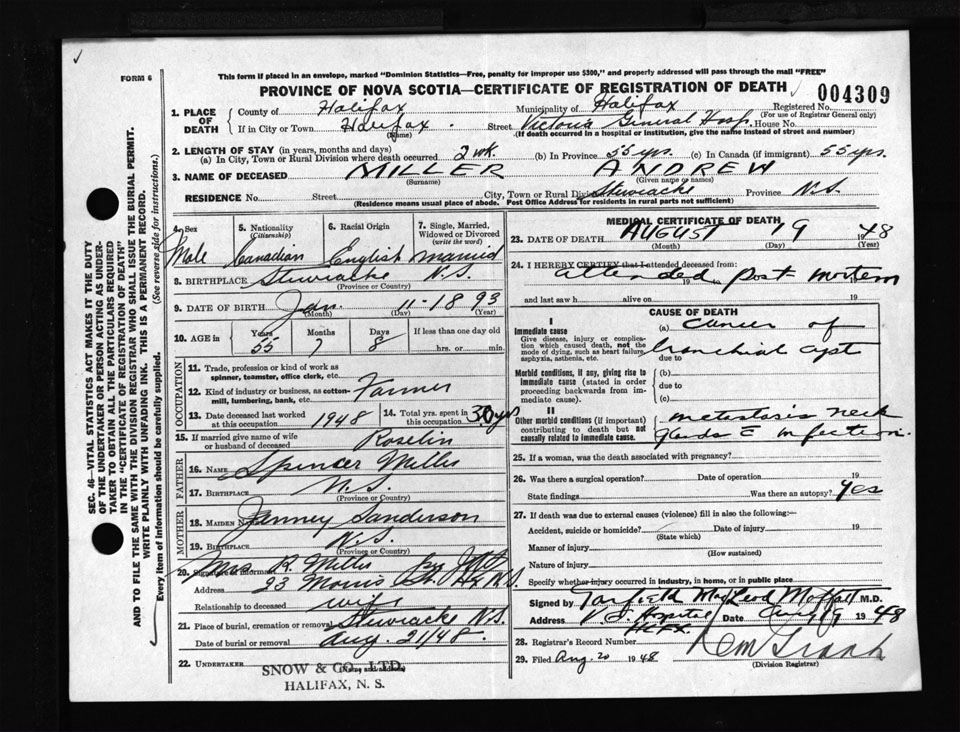 FORM 6
This form if placed in an envelope, marked "Dominion Statistics—Free, penalty for improper use $300," and properly addressed will pass through the mail "FREE"
PROVINCE OF NOVA SCOTIA—CERTIFICATE OF REGISTRATION OF DEATH
004309
1. PLACE OF DEATH
County of Halifax Municipality of Halifax Registered No.
(For use of Registrar General only)
If in City or Town Halifax. Street Victoria General Hosp. House No.
(Name) (If death occurred in a hospital or institution, give the name instead of street and number)
2. LENGTH OF STAY (in years, months and days)
(a) In City, Town or Rural Division where death occurred 2 wk. (b) In Province 55 yrs. (c) In Canada (if immigrant) 55 yrs.
3. NAME OF DECEASED MILLER ANDREW
(Surname) (Given name or names)
RESIDENCE No. Street City, Town or Rural Div. Stewiacke Province N.S.
(Residence means usual place of abode. Post Office Address for residents in rural parts not sufficient)
4. Sex 5. Nationality (Citizenship) 6. Racial Origin 7. Single, Married, Widowed or Divorced (write the word)
Male Canadian English married
8. BIRTHPLACE Stewiacke N.S.
(Province or Country)
9. DATE OF BIRTH Jan. 11-1893
(Month) (Day) (Year)
10. AGE in Years Months Days If less than one day old
55 7 8 hrs. or min.
OCCUPATION
11. Trade, profession or kind of work as spinner, teamster, office clerk, etc.
12. Kind of industry or business, as cotton-mill, lumbering, bank, etc. Farmer
13. Date deceased last worked at this occupation 1948 14. Total yrs. spent in this occupation 30 yrs
15. If married give name of wife or husband of deceased Roselin
FATHER
16. NAME Spincer Miller
17. BIRTHPLACE N.S.
(Province or Country)
MOTHER
18. MAIDEN NAME Janney Sanderson
19. BIRTHPLACE N.S.
(Province or Country)
20. Signature of informant Mrs R. Miller
Address 23 Morris St. Hx N.S.
Relationship to deceased wife
21. Place of burial, cremation or removal Stewiacke N.S.
Date of burial or removal Aug. 21/48.
22. UNDERTAKER
(Name and address)
SNOW & CO., LTD.
HALIFAX, N. S.
MEDICAL CERTIFICATE OF DEATH
23. DATE OF DEATH AUGUST 19 1948
(Month) (Day) (Year)
24. I HEREBY CERTIFY that I attended deceased from:
attended post mortem
19 to 19
and last saw h alive on 19
CAUSE OF DEATH
I
Immediate cause
Give disease, injury or complication which caused death, not the mode of dying, such as heart failure, asphyxia, asthenia, etc.
(a) cancer of
branchial cyst
due to
Morbid conditions, if any, giving rise to immediate cause (stated in order proceeding backwards from immediate cause).
(b)
due to
(c)
II
Other morbid conditions (if important) contributing to death but not causally related to immediate cause.
metastasis neck
glands c infection.
25. If a woman, was the death associated with pregnancy?
26. Was there a surgical operation? Date of operation 19
State findings Was there an autopsy? Yes
27. If death was due to external causes (violence) fill in also the following:—
Accident, suicide or homicide? Date of injury 19
(State which)
Manner of injury
(How sustained)
Nature of injury
Specify whether injury occurred in industry, in home, or in public place
Signed by Garfield MacLeod Moffatt M.D.
Address V. G. Hospital Date Aug 19 1948
HLFX.
28. Registrar's Record Number
29. Filed Aug. 20 1948
(Division Registrar)
SEC. 46—VITAL STATISTICS ACT MAKES IT THE DUTY
OF THE UNDERTAKER OR PERSON ACTING AS UNDER-
TAKER TO OBTAIN ALL THE PARTICULARS REQUIRED
IN THE "CERTIFICATE OF REGISTRATION OF DEATH"
AND TO FILE THE SAME WITH THE DIVISION REGISTRAR WHO SHALL ISSUE THE BURIAL PERMIT.
WRITE PLAINLY WITH UNFADING INK. THIS IS A PERMANENT RECORD.
Every item of information should be carefully supplied. (See reverse side for instructions.)